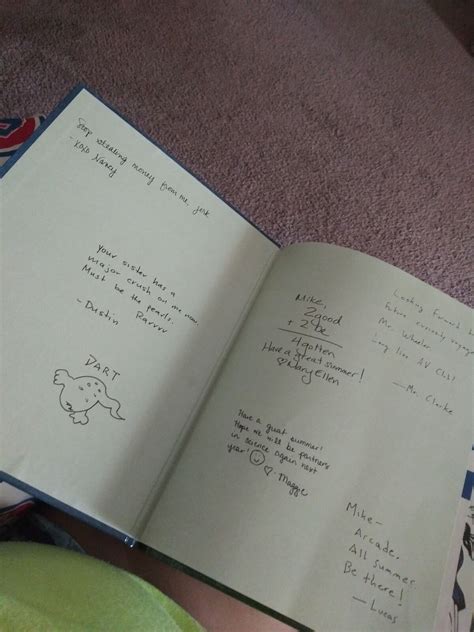 Stop stealing money from me, jerk
-XOXO Nancy
Your sister has a
major crush on me now.
Must be the pearls.
Rarrrr
- Dustin
DART
Mike,
2good
+ 2 be
4gotten
Have a great summer!
♡ Mary Ellen
Looking forward
future curiosity voyages
Mr. Wheeler
Long live AV Club!
— Mr. Clarke
Have a great summer!
Hope we will be partners
in science again next
year! ☺ ♡ - Maggie
Mike-
Arcade.
All summer.
Be there!
— Lucas